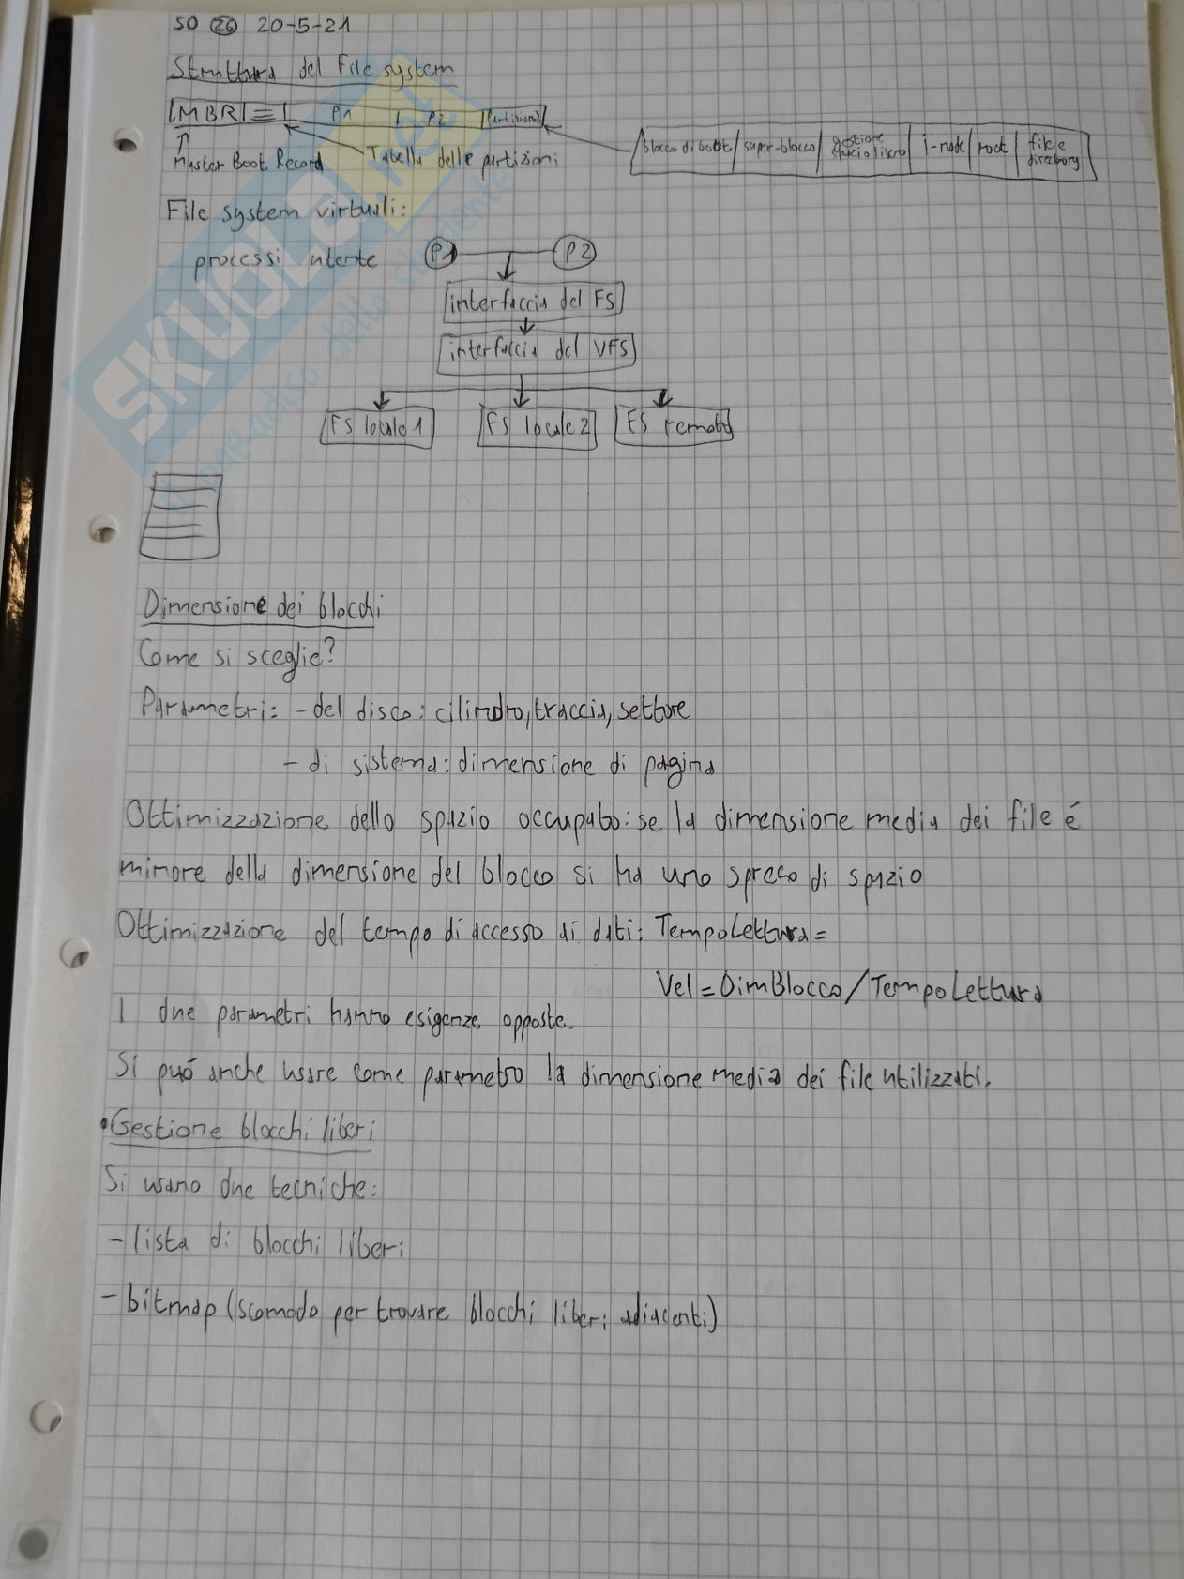 SO 26 20-5-21
Struttura del File system
MBR P1 P2 Partizioni
Master Boot Record
Tabella delle partizioni
blocco di boot super-blocco gestione spazio libero i-node root file e directory
File system virtuali:
processi utente P1 P2
interfaccia del FS
interfaccia del VFS
FS locale 1 FS locale 2 FS remoto
Dimensione dei blocchi
Come si sceglie?
Parametri: - del disco: cilindro, traccia, settore
- di sistema: dimensione di pagina
Ottimizzazione dello spazio occupato: se la dimensione media dei file é
minore della dimensione del blocco si ha uno spreco di spazio
Ottimizzazione del tempo di accesso ai dati: TempoLettura=
Vel=DimBlocco/TempoLettura
I due parametri hanno esigenze opposte.
Si puó anche usare come parametro la dimensione media dei file utilizzati.
•Gestione blocchi liberi
Si usano due tecniche:
- lista di blocchi liberi
- bitmap (scomodo per trovare blocchi liberi adiacenti)
SKUOLA.net